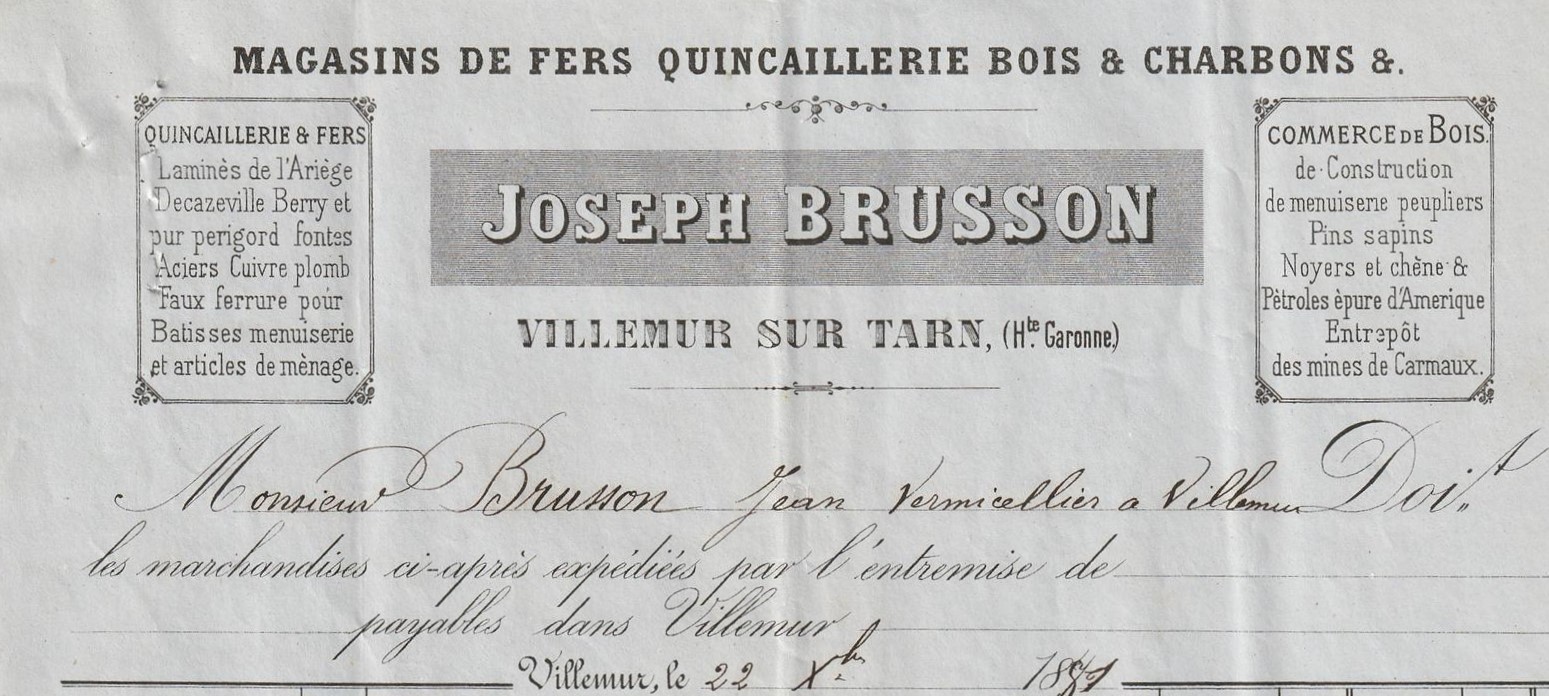 MAGASINS DE FERS QUINCAILLERIE BOIS & CHARBONS &.
QUINCAILLERIE & FERS
Laminès de l'Ariège
Decazeville Berry et
pur perigord fontes
Aciers Cuivre plomb
Faux ferrure pour
Batisses menuiserie
et articles de mènage.
JOSEPH BRUSSON
VILLEMUR SUR TARN, (Hte. Garonne)
COMMERCE DE BOIS.
de Construction
de menuiserie peupliers
Pins sapins
Noyers et chène &
Pètroles èpure d'Amerique
Entrepôt
des mines de Carmaux.
Monsieur Brusson Jean Vermicellier a Villemur Doit
les marchandises ci-après expédiées par l'entremise de
payables dans Villemur
Villemur, le 22 Xbre